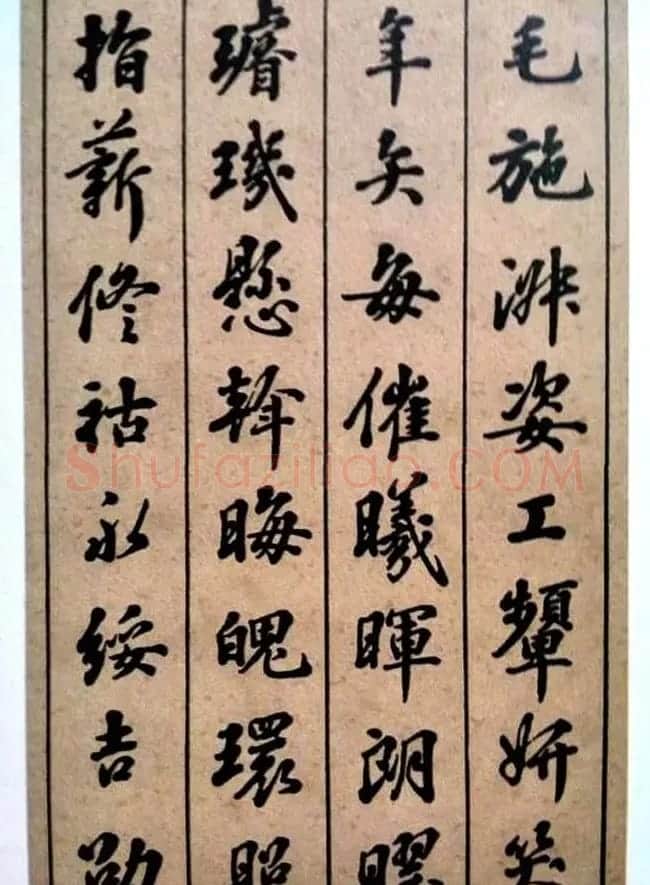 毛施淑姿工顰妍笑
年矢每催曦暉朗曜
璿璣懸斡晦魄環照
指薪修祜永綏吉劭
Shufaziliao.COM